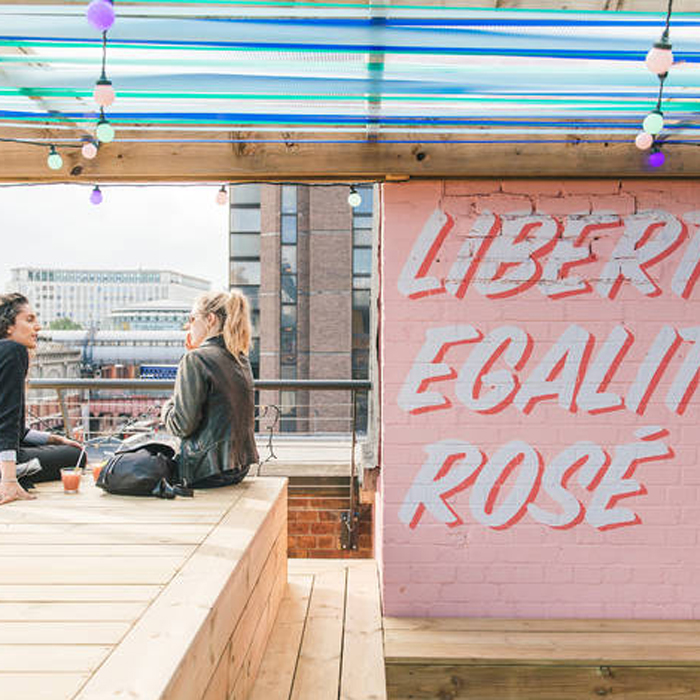 LIBERT
EGALIT
ROSÉ